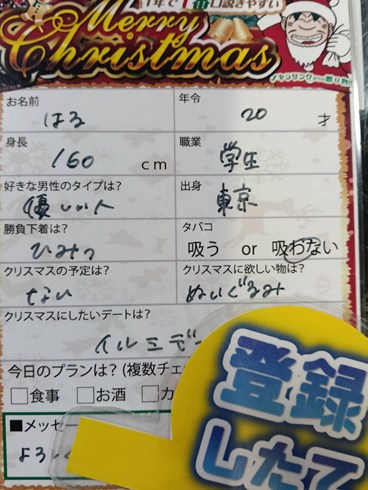 1年で1番口説きやすい
Merry
Christmas
お名前
はる
年令
20 才
身長
160 cm
職業
学生
好きな男性のタイプは?
優しい人
出身
東京
勝負下着は?
ひみつ
タバコ
吸う or 吸わない
クリスマスの予定は?
ない
クリスマスに欲しい物は?
ぬいぐるみ
クリスマスにしたいデートは?
イルミデー
今日のプランは?(複数チェ
食事 お酒 カ
■メッセー
よろし
登録
したて